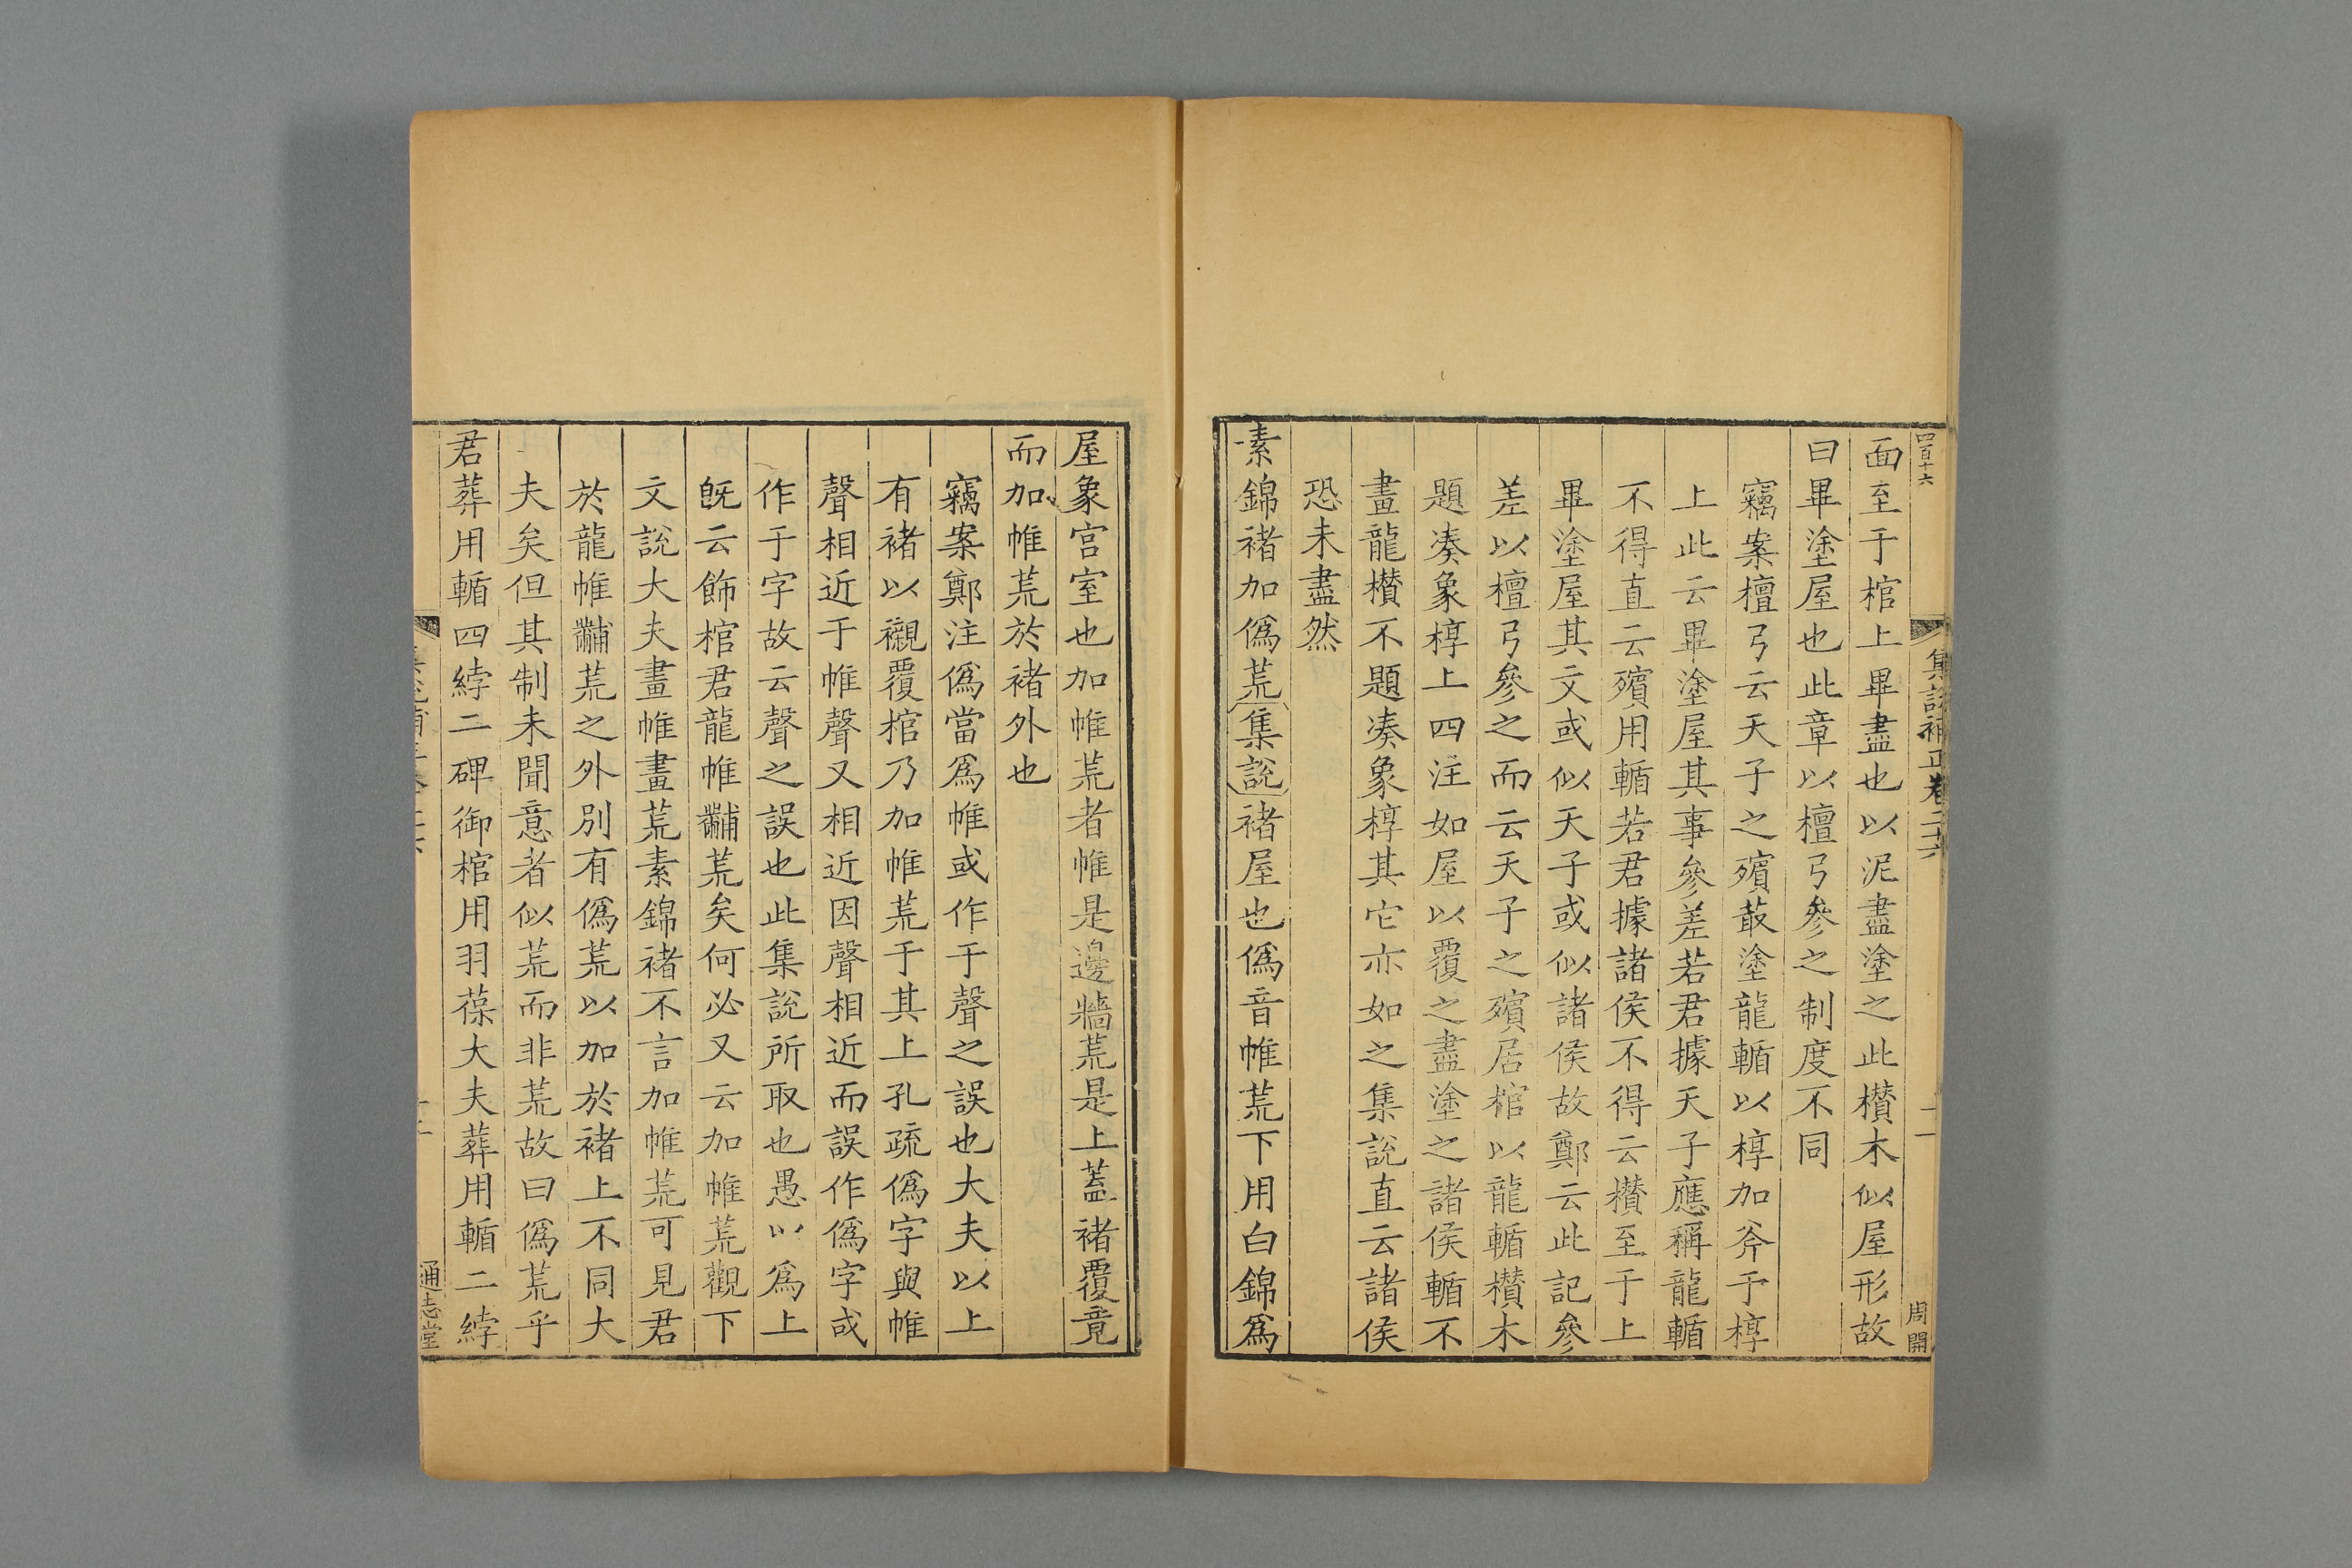 四百十六
集說補正卷二十六
二
周開
面至于棺上畢盡也以泥盡塗之此欑木似屋形故
曰畢塗屋也此章以檀弓參之制度不同
竊案檀弓云天子之殯菆塗龍輴以椁加斧于椁
上此云畢塗屋其事參差若君據天子應稱龍輴
不得直云殯用輴若君據諸侯不得云欑至于上
畢塗屋其文或似天子或似諸侯故鄭云此記參
差以檀弓參之而云天子之殯居棺以龍輴欑木
題湊象椁上四注如屋以覆之盡塗之諸侯輴不
畫龍欑不題湊象椁其它亦如之集說直云諸侯
恐未盡然
素錦褚加僞荒集說褚屋也僞音帷荒下用白錦爲
屋象宮室也加帷荒者帷是邊牆荒是上蓋褚覆竟
而加帷荒於褚外也
竊案鄭注僞當爲帷或作于聲之誤也大夫以上
有褚以襯覆棺乃加帷荒于其上孔疏僞字與帷
聲相近于帷聲又相近因聲相近而誤作僞字或
作于字故云聲之誤也此集說所取也愚以爲上
旣云飾棺君龍帷黼荒矣何必又云加帷荒觀下
文說大夫畫帷畫荒素錦褚不言加帷荒可見君
於龍帷黼荒之外別有僞荒以加於褚上不同大
夫矣但其制未聞意者似荒而非荒故曰僞荒乎
君葬用輴四綍二碑御棺用羽葆大夫葬用輴二綍
通志堂